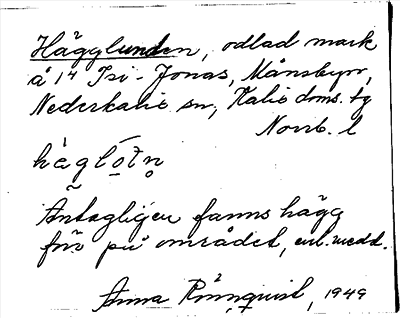 Hägglunden, odlad mark
å 1⁴ Isi-Jonas, Månsbyn,
Nederkalix sn, Kalix doms. tg
Norrb. l
Antagligen fanns hägg
förr på området, enl. medd.
Anna Rönnquist, 1949